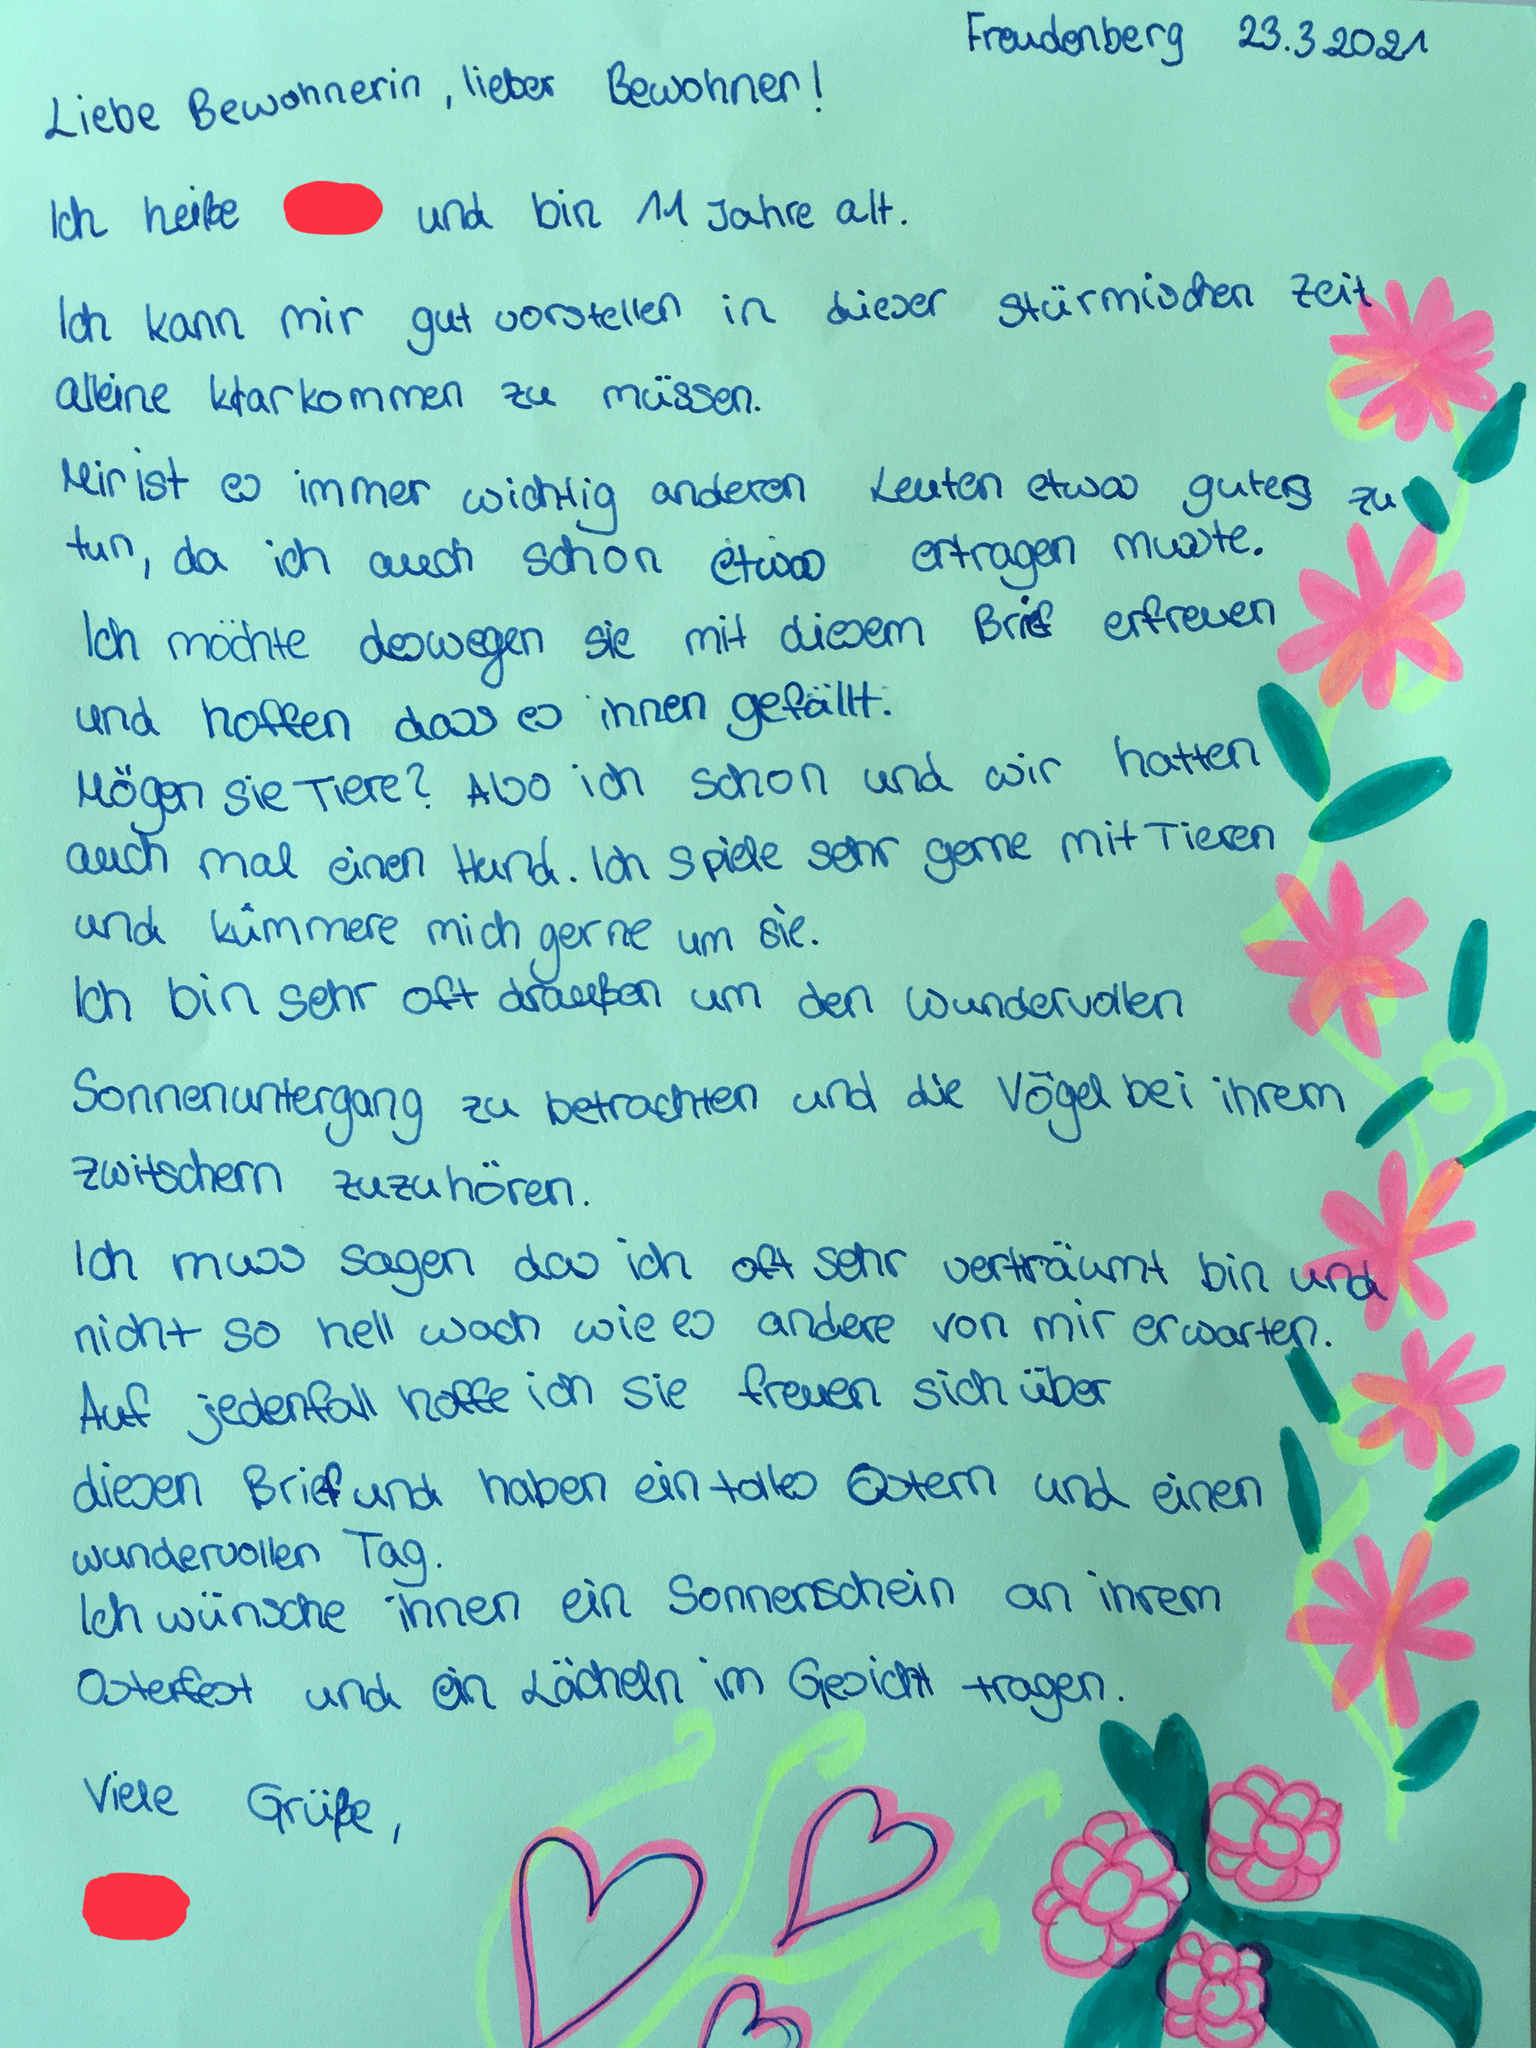 Freudenberg 23.3.2021
Liebe Bewohnerin, lieber Bewohner!
Ich heiße und bin 11 Jahre alt.
Ich kann mir gut vorstellen in dieser stürmischen Zeit
alleine klarkommen zu müssen.
Mir ist es immer wichtig anderen Leuten etwas gutes zu
tun, da ich auch schon etwas ertragen musste.
Ich möchte deswegen sie mit diesem Brief erfreuen
und hoffen dass es ihnen gefällt.
Mögen sie Tiere? Also ich schon und wir hatten
auch mal einen Hund. Ich spiele sehr gerne mit Tieren
und kümmere mich gerne um sie.
Ich bin sehr oft draußen um den wundervollen
Sonnenuntergang zu betrachten und die Vögel bei ihrem
zwitschern zuzuhören.
Ich muss sagen das ich oft sehr verträumt bin und
nicht so hell wach wie es andere von mir erwarten.
Auf jedenfall hoffe ich sie freuen sich über
diesen Brief und haben ein tolles Ostern und einen
wundervollen Tag.
Ich wünsche ihnen ein Sonnenschein an ihrem
Osterfest und ein Lächeln im Gesicht tragen.
Viele Grüße,